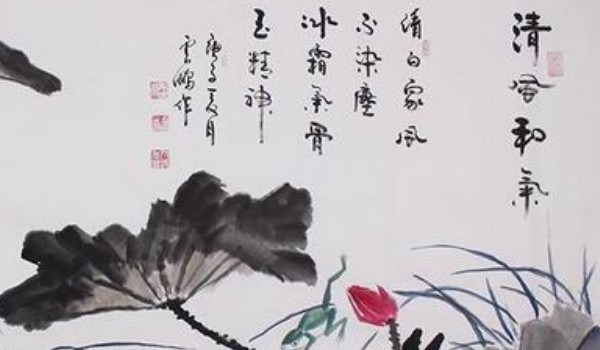 清風和氣
清白家風
不染塵
冰霜氣骨
玉精神
庚子夏月
雲鵬作